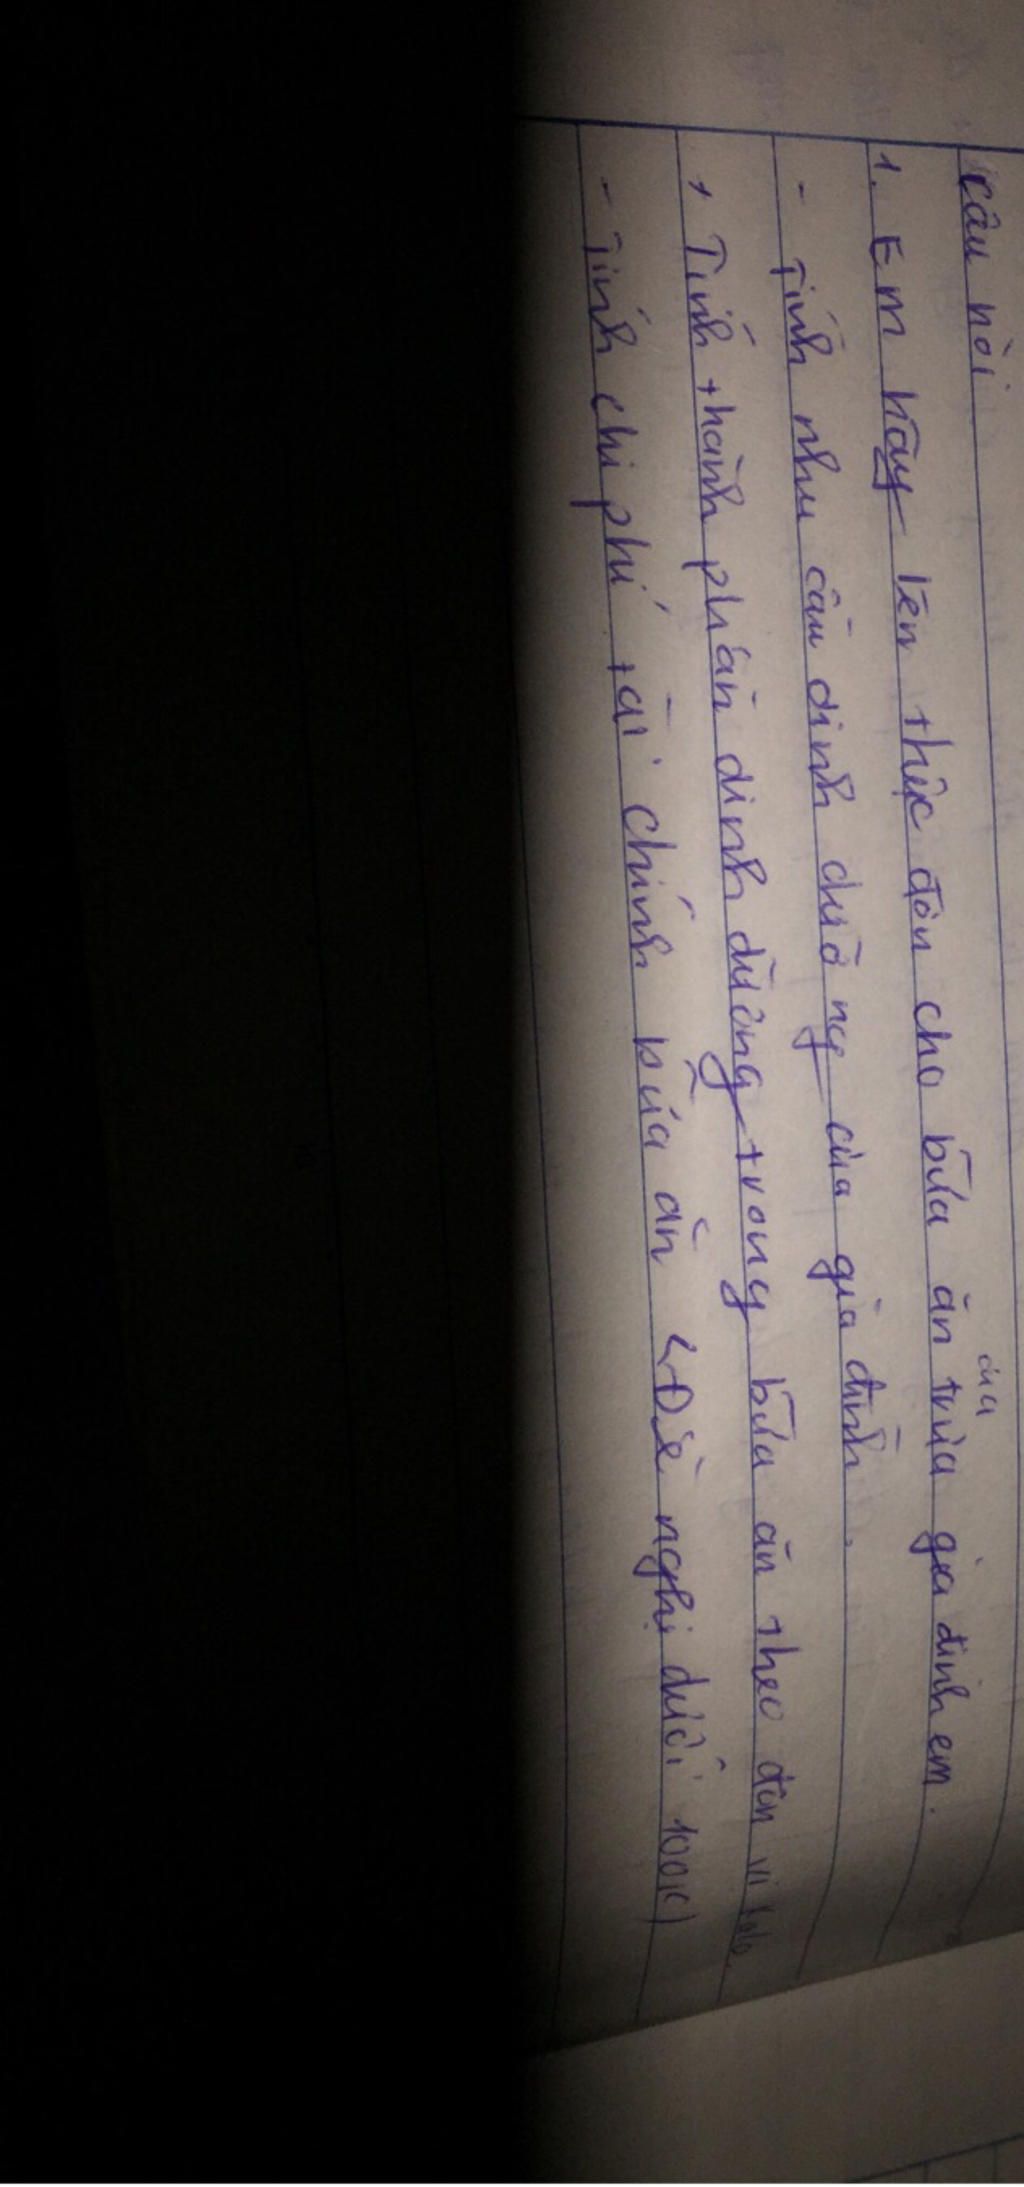 Câu hỏi
1. Em hãy lên thực đơn cho bữa ăn trưa của gia đình em.
- Tính nhu cầu dinh dưỡng của gia đình.
+ Tính thành phần dinh dưỡng trong bữa ăn theo đơn vị kalo.
- Tính chi phí tài chính bữa ăn (Đề nghị dưới 100k)